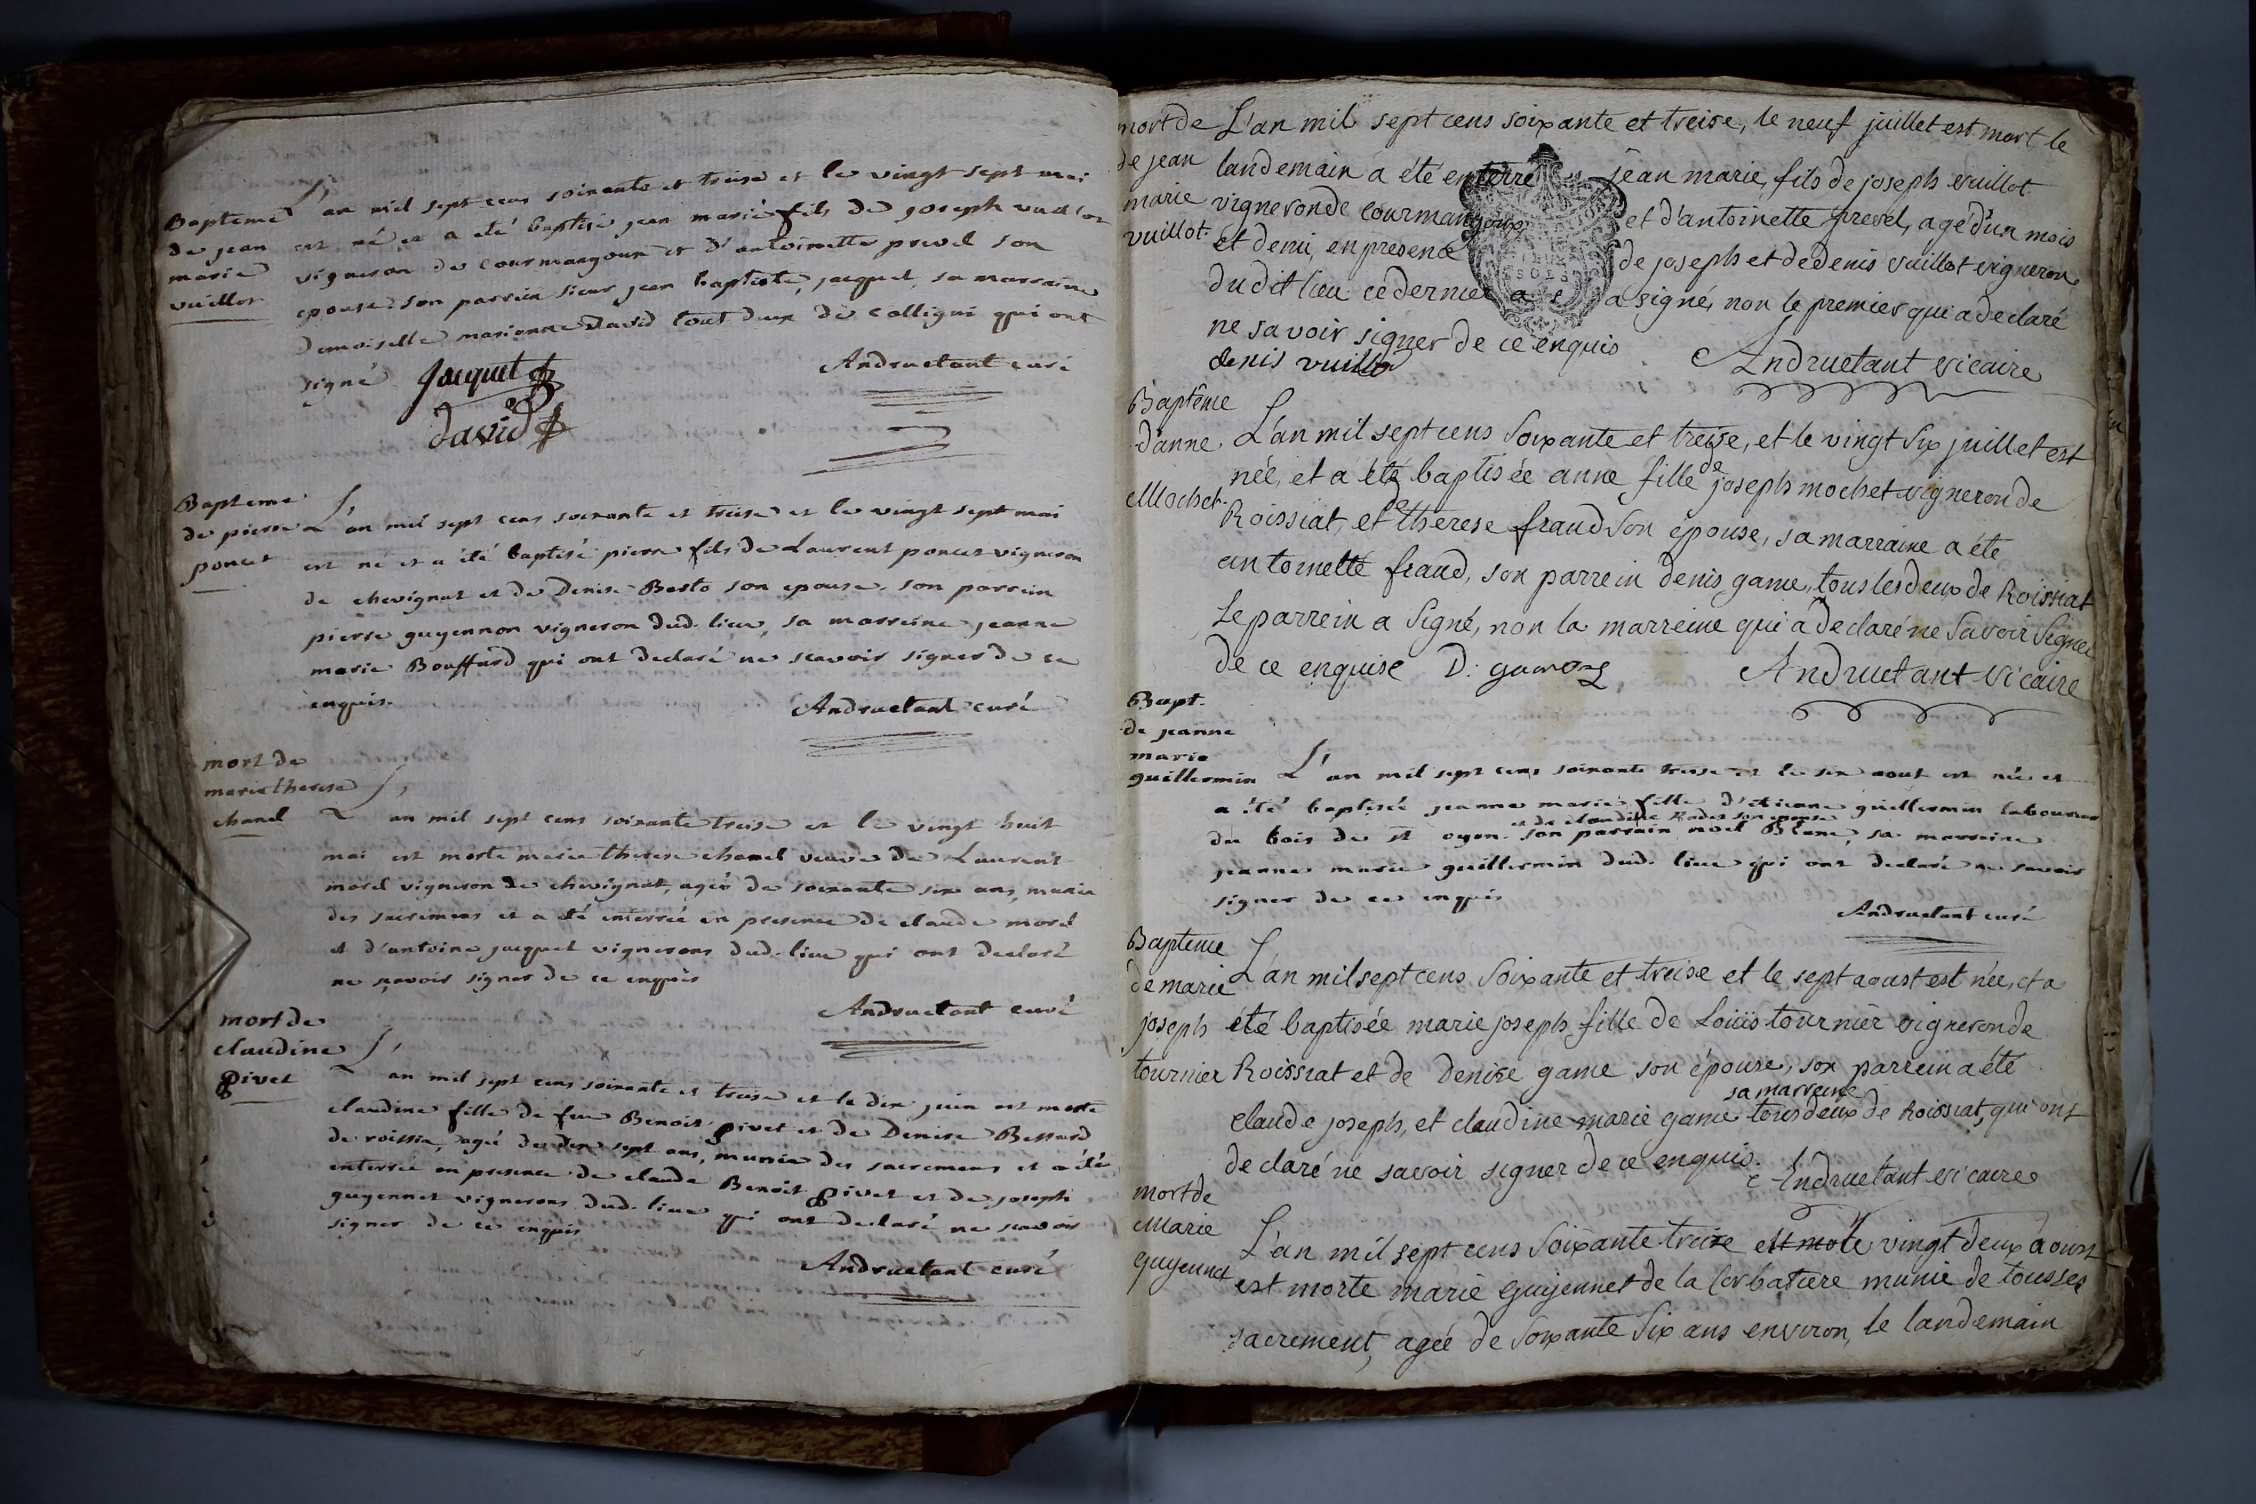 Bapteme
de jean
marie
vuillot
L'an mil sept cens soixante et treise et le vingt sept mai
est né et a eté baptisé jean marie fils de joseph vuillot
vigneron de courmangoux et d'antoinette prevel son
epouse son parrein sieur jean baptiste jacquet, sa marraine
demoiselle marianne David tout deux de colligni qui ont
signé
jacquet
david
Andruetant curé
Bapteme
de pierre
poncet
L'an mil sept cens soixante et treise et le vingt sept mai
est né et a été baptisé pierre fils de Laurent poncet vigneron
de chevignat et de Denise son epouse, son parrein
pierre guyennon vigneron dud. lieu, sa marreine jeanne
marie Bouffard qui ont declaré ne scavoir signer de ce
enquis.
Andruetant curé
mort de
marie therese
chanel
L'an mil sept cens soixante treise et le vingt huit
mai est morte marie therese chanel veuve de Laurent
morel vigneron de chevignat, agée de soixante six ans, munie
des sacremens et a été enterrée en presence de claude morel
et d'antoine jacquet vignerons dud. lieu qui ont declaré
ne scavoir signer de ce enquis
Andruetant curé
mort de
claudine
pivet
L'an mil sept cens soixante et treise et le dix juin est morte
claudine fille de feu Benoit pivet et de Denise Bessard
de roissia, agée de dix sept ans, munie des sacremens et a été
enterrée en presence de claude Benoit pivet et de joseph
guyennet vignerons dud. lieu qui ont declaré ne scavoir
signer de ce enquis
Andruetant curé
mort de
de jean
marie
vuillot.
L'an mil sept cens soixante et treise, le neuf juillet est mort le
landemain a été enterré jean marie, fils de joseph vuillot
vigneron de courmangoux, et d'antoinette prevel, agé d'un mois
et demi, en presence de joseph et de denis vuillot vigneron
du dit lieu ce dernier a signé, non le premier qui a declaré
ne savoir signer de ce enquis
denis vuillot
Andruetant vicaire
Baptême
d'anne
Mochet.
L'an mil sept cens soixante et treise, et le vingt six juillet est
née, et a été baptisée anne fille de joseph mochet vigneron de
Roissiat, et de therese fraud son épouse, sa marraine a été
antoinette fraud, son parrein denis game, tous les deux de Roissiat
Le parrein a signé, non la marreine qui a declaré ne savoir signer
de ce enquise D. game
Andruetant vicaire
Bapt.
de jeanne
marie
guillermin
L'an mil sept cens soixante treise et le six aout est née et
a été baptisée jeanne marie fille d'etienne guillermin laboureur
et de claudine Rodet son epouse
du bois de st oyen. son parrain noel Blanc, sa marreine
jeanne marie guillermin dud. lieu qui ont declaré ne savoir
signer de ce enquis
Andruetant curé
Bapteme
de marie
joseph
tournier
L'an mil sept cens soixante et treise et le sept aoust est née, et a
été baptisée marie joseph fille de Louïs tournier vigneron de
Roissiat et de denise game son épouse, son parrein a été
sa marreine
claude joseph, et claudine marie game tous deux de Roissiat, qui ont
declaré ne savoir signer de ce enquis.
Andruetant vicaire
mort de
Marie
guyennet
L'an mil sept cens soixante treize est morte vingt deux aoust
est morte marie guyennet de la Corbatiere munie de tous ses
sacrement, agée de soixante six ans environ, le landemain